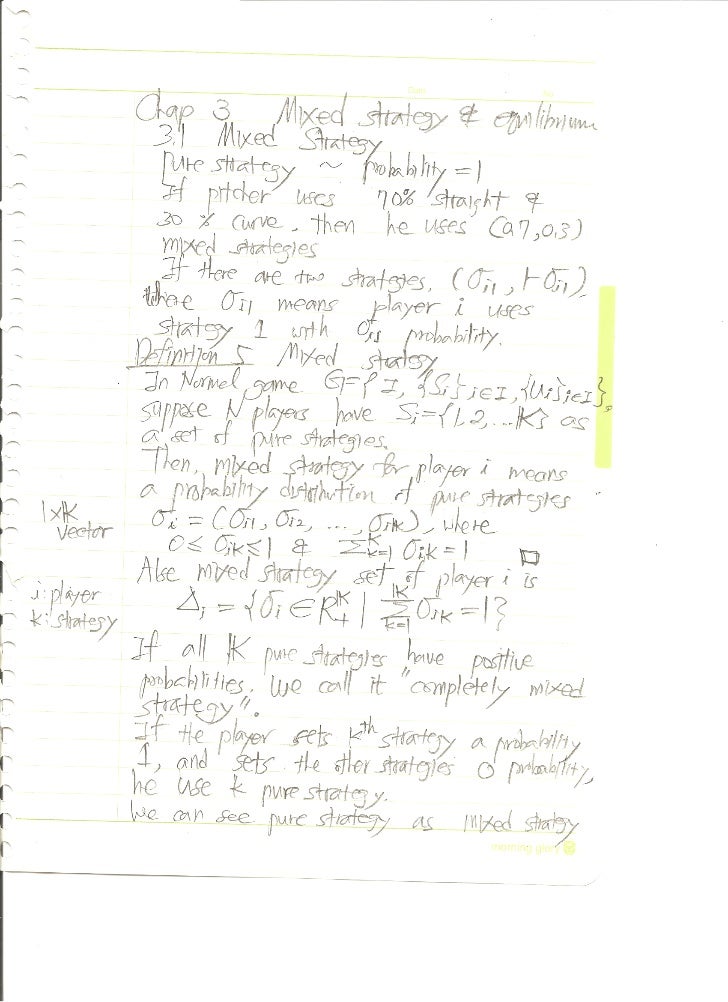 Date
No
Chap 3 Mixed strategy & equilibrium
3.1 Mixed Strategy
pure strategy ~ probability = 1
If pitcher uses 70% straight &
30 % curve, then he uses (0.7, 0.3)
mixed strategies
If there are two strategies, (σi1, 1-σi1),
where σi1 means player i uses
strategy 1 with σi1 probability.
Definition 5 Mixed strategy
In Normal game G={I, {Si}i∈I, {Ui}i∈I},
suppose N players have Si={1,2,...K} as
a set of pure strategies.
Then, mixed strategy for player i means
a probability distribution of pure strategies
1xK
Vector
σi = (σi1, σi2, ..., σiK), where
0 ≤ σik ≤ 1 & Σ^K_k=1 σik = 1 □
Also mixed strategy set of player i is
i: player
k: strategy
Δi = {σi ∈ R^K_+ | Σ^K_k=1 σik = 1}
If all K pure strategies have positive
probabilities, we call it "completely mixed
strategy".
If the player sets kth strategy a probability
1, and sets the other strategies 0 probability,
he use k pure strategy.
We can see pure strategy as mixed strategy
morning glory